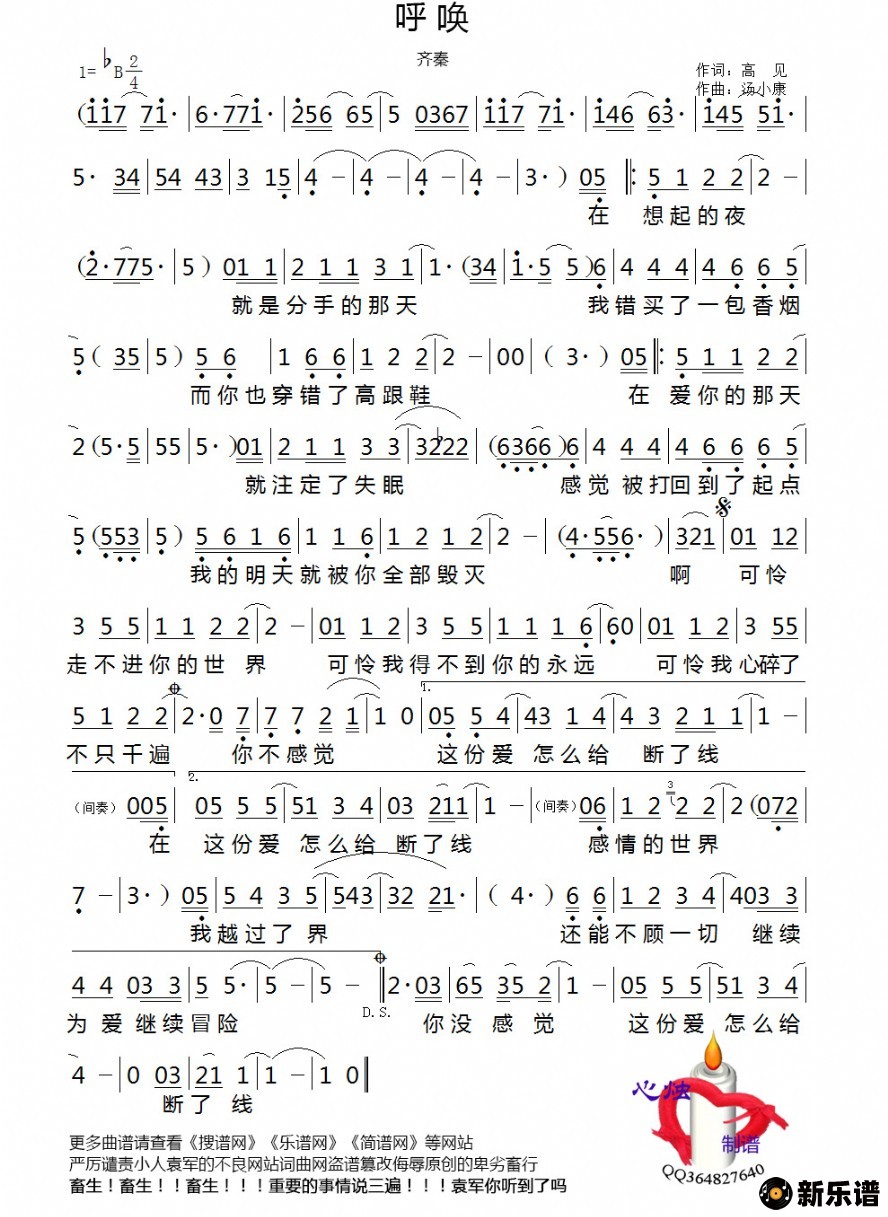 呼唤
齐秦
1=♭B 2/4
作词：高 见
作曲：汤小康
(i i 7 7 i· | 6·7 7 i· | 2 5 6 6 5 | 5 0 3 6 7 | i i 7 7 i· | i 4 6 6 3· | i 4 5 5 i· |
5· 3 4 | 5 4 4 3 | 3 1 5 | 4 － | 4 － | 4 － | 4 － | 3· ) | 0 5 ‖: 5 1 2 2 | 2 － |
在 想起的夜
(2·7 7 5· | 5 ) 0 1 1 | 2 1 1 3 1 | 1· (3 4 | i·5 5 ) 6 | 4 4 4 | 4 6 6 5 |
就是分手的那天 我错买了一包香烟
5 ( 3 5 | 5 ) 5 6 | 1 6 6 | 1 2 2 | 2 － | 0 0 | ( 3· ) 0 5 :‖: 5 1 1 2 2 |
而你也穿错了高跟鞋 在 爱你的那天
2 (5·5 | 5 5 | 5· ) 0 1 | 2 1 1 3 3 | 3 2 2 2 | (6 3 6 6 ) 6 | 4 4 4 | 4 6 6 6 5 |
就注定了失眠 感觉 被打回到了起点
5 (5 5 3 | 5 ) | 5 6 1 6 | 1 1 6 | 1 2 1 2 | 2 － | (4·5 5 6· ) | 3 2 1 | 0 1 1 2 |
我的明天就被你全部毁灭 啊 可怜
3 5 5 | 1 1 2 2 | 2 － | 0 1 1 2 | 3 5 5 | 1 1 1 6 | 6 0 | 0 1 1 2 | 3 5 5 |
走不进你的世 界 可怜我得不到你的永远 可怜我心碎了
1.
5 1 2 2 | 2·0 7 | 7 7 2 1 | 1 0 | 0 5 5 4 | 4 3 1 4 | 4 3 2 1 1 | 1 － |
不只千遍 你不感觉 这份爱 怎么给 断了线
2.
（间奏） 0 0 5 | 0 5 5 5 | 5 1 3 4 | 0 3 2 1 1 | 1 － | （间奏） 0 6 | 1 2 3 2 2 | 2 (0 7 2 |
在 这份爱 怎么给 断了线 感情的世界
7 － | 3· ) 0 5 | 5 4 3 5 | 5 4 3 | 3 2 2 1· | ( 4· ) 6 6 | 1 2 3 4 | 4 0 3 3 |
我越过了 界 还能不顾一切 继续
4 4 0 3 3 | 5 5· | 5 － | 5 － ‖ 2·0 3 | 6 5 3 5 2 | 1 － | 0 5 5 5 | 5 1 3 4 |
D.S.
为 爱 继续冒险 你没 感 觉 这份爱 怎么给
4 － | 0 0 3 | 2 1 1 | 1 － | 1 0 ‖
断了 线
心烛
制谱
QQ364827640
更多曲谱请查看《搜谱网》《乐谱网》《简谱网》等网站
严厉谴责小人袁军的不良网站词曲网盗谱篡改侮辱原创的卑劣畜行
畜生！畜生！！畜生！！！重要的事情说三遍！！！袁军你听到了吗
新乐谱